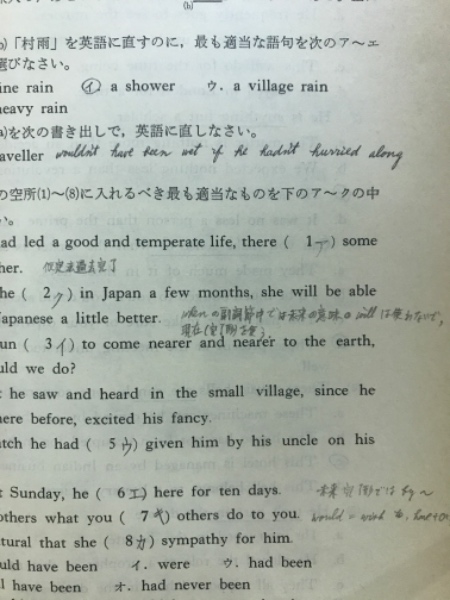 (b)
b)「村雨」を英語に直すのに，最も適当な語句を次のア～エ
選びなさい。
ine rain　イ. a shower　ウ. a village rain
heavy rain
a)を次の書き出しで，英語に直しなさい。
aveller wouldn't have been wet if he hadn't hurried along
の空所(1)～(8)に入れるべき最も適当なものを下のア～クの中
い。
ad led a good and temperate life, there ( 1 ) some
her. 仮定法過去完了
he ( 2ク ) in Japan a few months, she will be able
Japanese a little better. whenの副詞節中では未来の意味のwillは使わないで,
un ( 3イ ) to come nearer and nearer to the earth, 現在(完了形)を使う.
uld we do?
t he saw and heard in the small village, since he
here before, excited his fancy.
atch he had ( 5ウ ) given him by his uncle on his
t Sunday, he ( 6エ ) here for ten days. 未来完了形では
others what you ( 7キ ) others do to you. would = wish
tural that she ( 8カ ) sympathy for him.
uld have been　イ. were　ウ. had been
l have been　オ. had never been